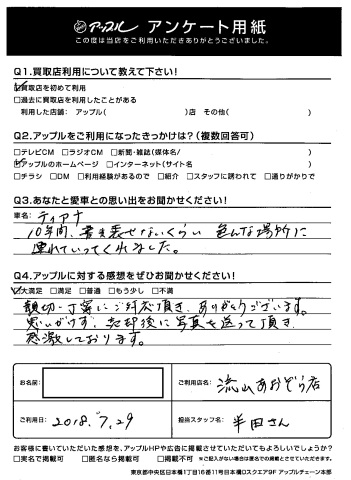 アップル アンケート用紙
この度は当店をご利用いただきありがとうございました。
Q1.買取店利用について教えて下さい!
☑買取店を初めて利用
□過去に買取店を利用したことがある
利用した店舗： アップル( )店 その他( )
Q2.アップルをご利用になったきっかけは?（複数回答可）
□テレビCM □ラジオCM □新聞・雑誌(媒体名/ )
☑アップルのホームページ □インターネット(サイト名 )
□チラシ □DM □利用経験があるので □紹介 □スタッフに誘われて □通りがかりで
Q3.あなたと愛車との思い出をお聞かせください!
車名： ティアナ
10年間、書き表せないくらい 色んな場所に
連れていってくれました。
Q4.アップルに対する感想をぜひお聞かせください!
☑大満足 □満足 □普通 □もう少し □不満
親切丁寧にご対応頂き、ありがとうございます。
思いがけず、売却後に写真を送って頂き、
感激しております。
お名前：
ご利用店名： 流山おおぞら店
ご利用日： 2018.7.29
担当スタッフ名： 半田さん
お客様に書いていただいた感想を、アップルHPや広告に掲載させていただいてもよろしいでしょうか?
□実名で掲載可 □匿名なら掲載可 □掲載不可 ※ご記入がない場合は匿名での掲載とさせていただきます。
東京都中央区日本橋1丁目16番11号日本橋Dスクエア9F アップルチェーン本部